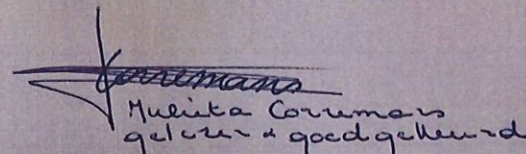 Corremans
Julieta Corremans
gelezen & goedgekeurd